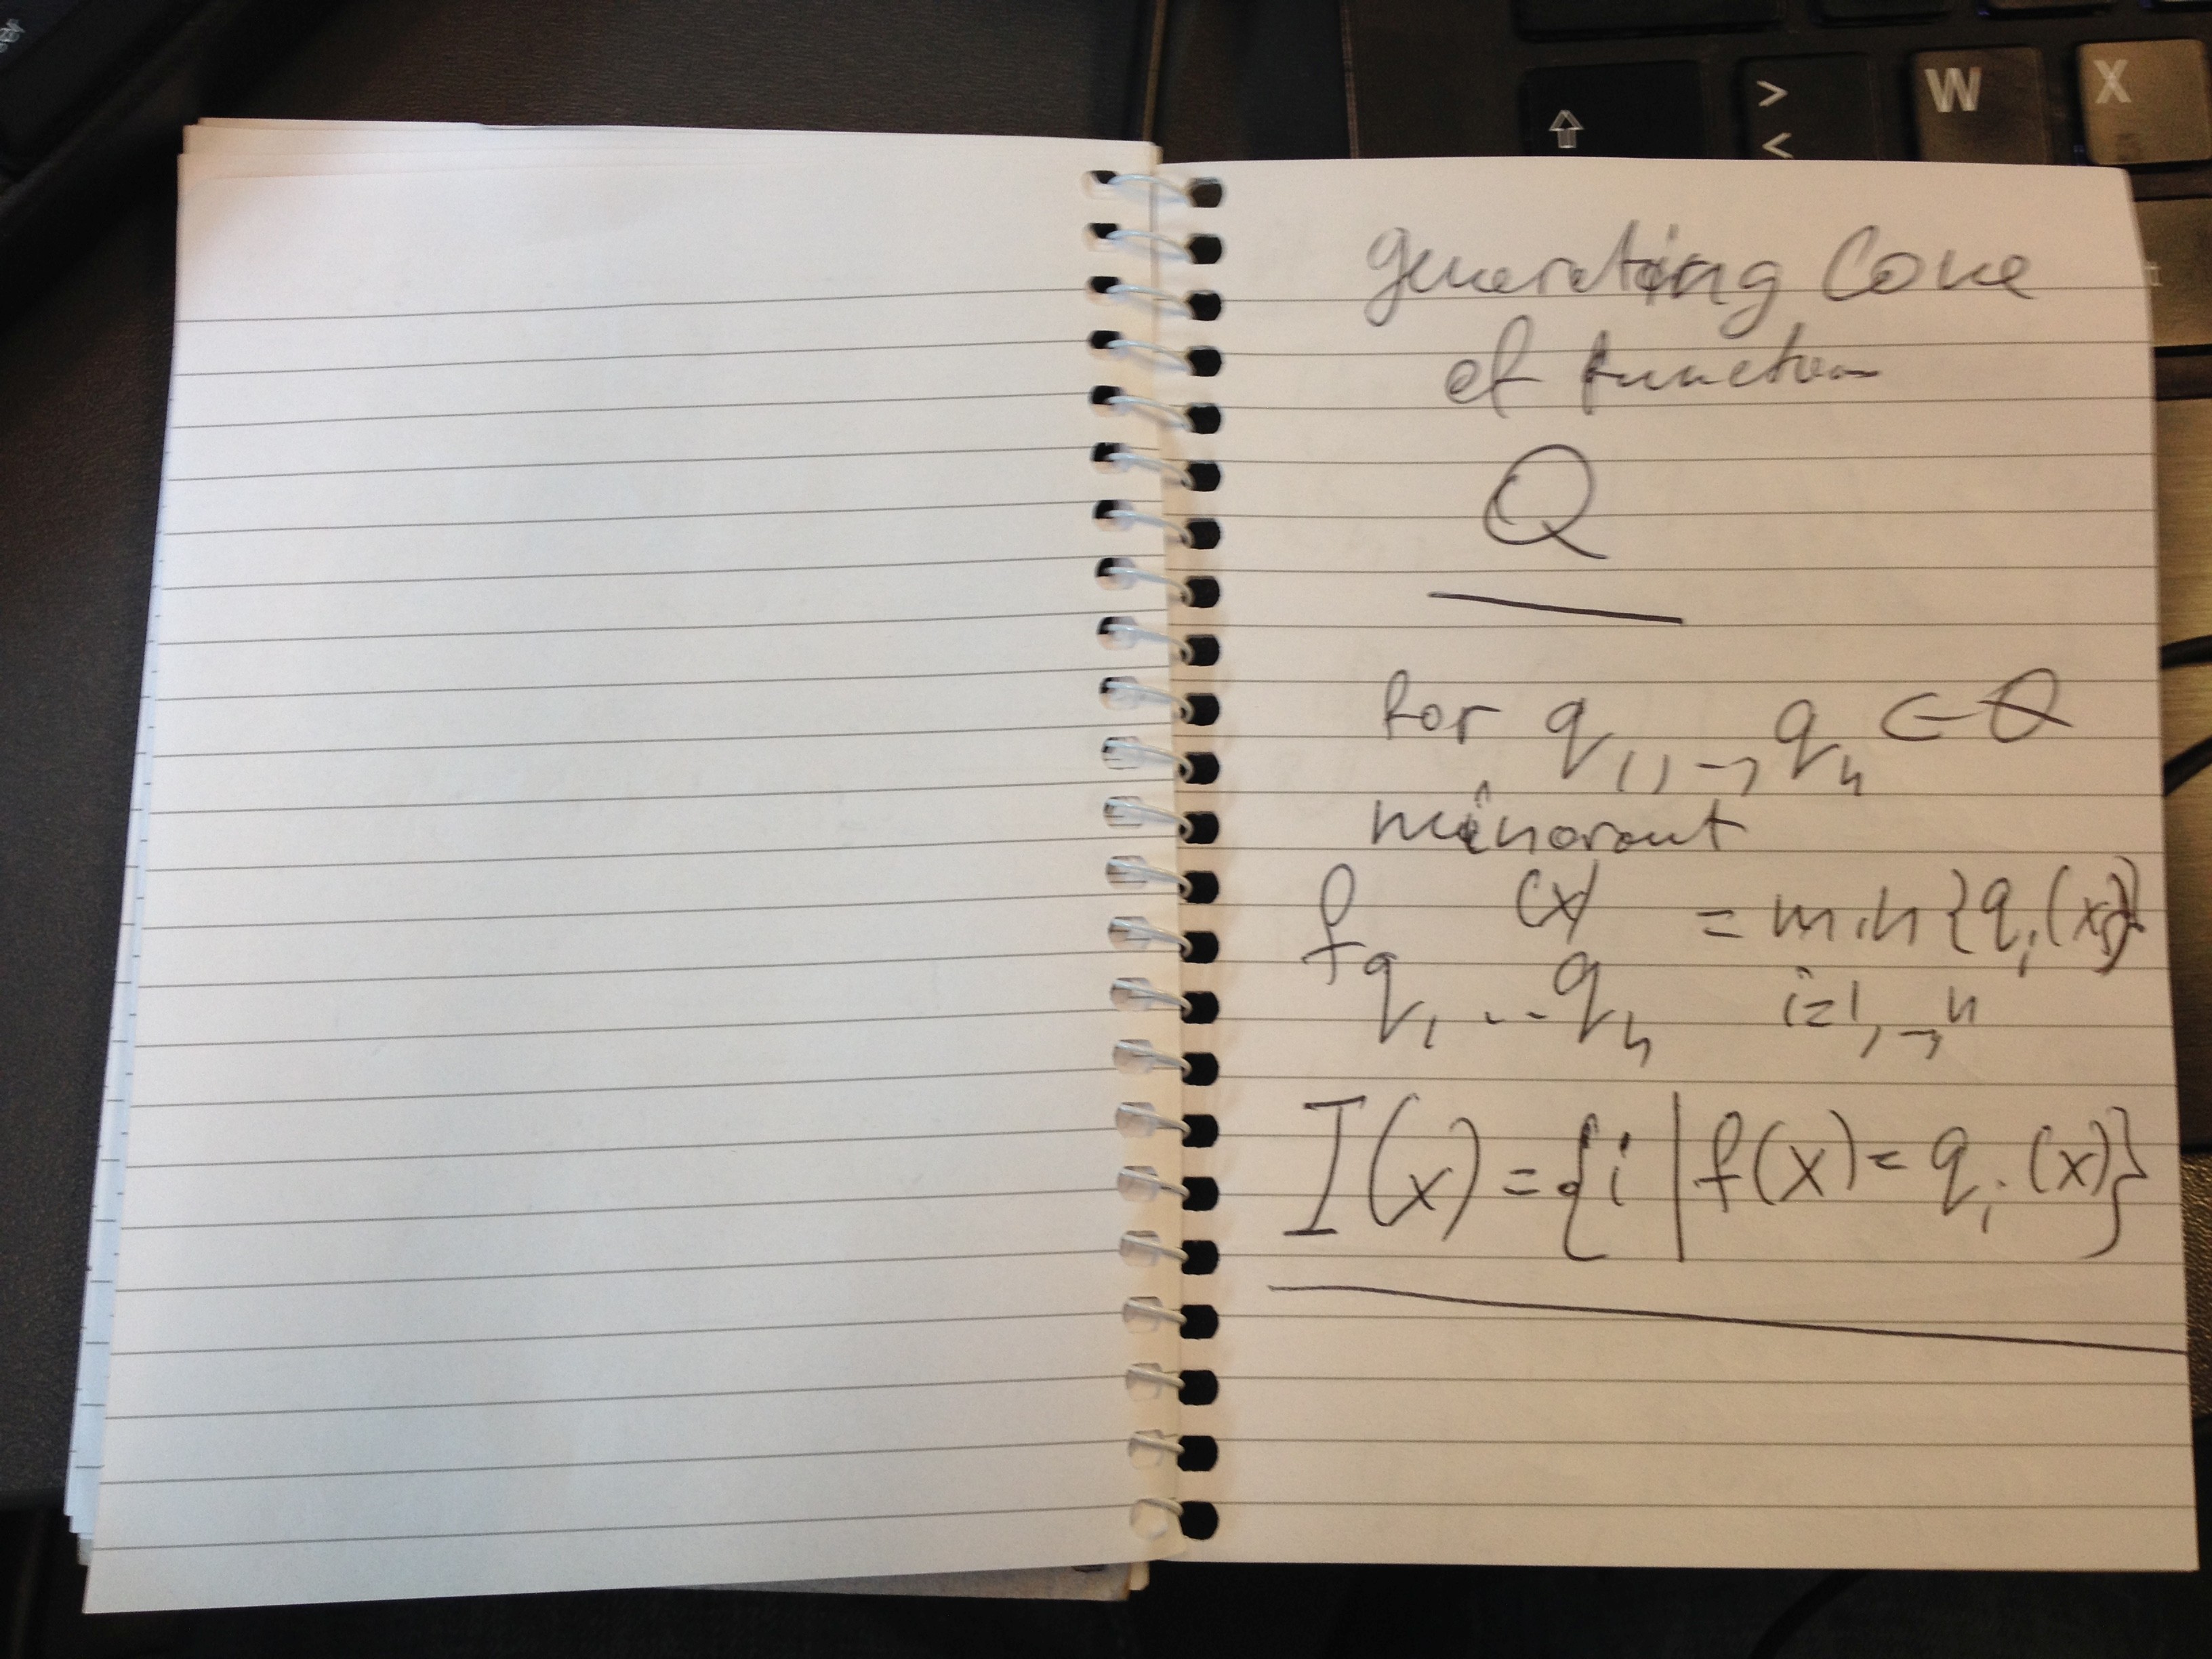 >
<
W
X
generating Cone
of function
Q
for q1, → qn ⊂ Q
minorant
f q1 ... qn (x) = min {qi(x)}
i=1, → n
I(x) = {i | f(x) = qi(x)}